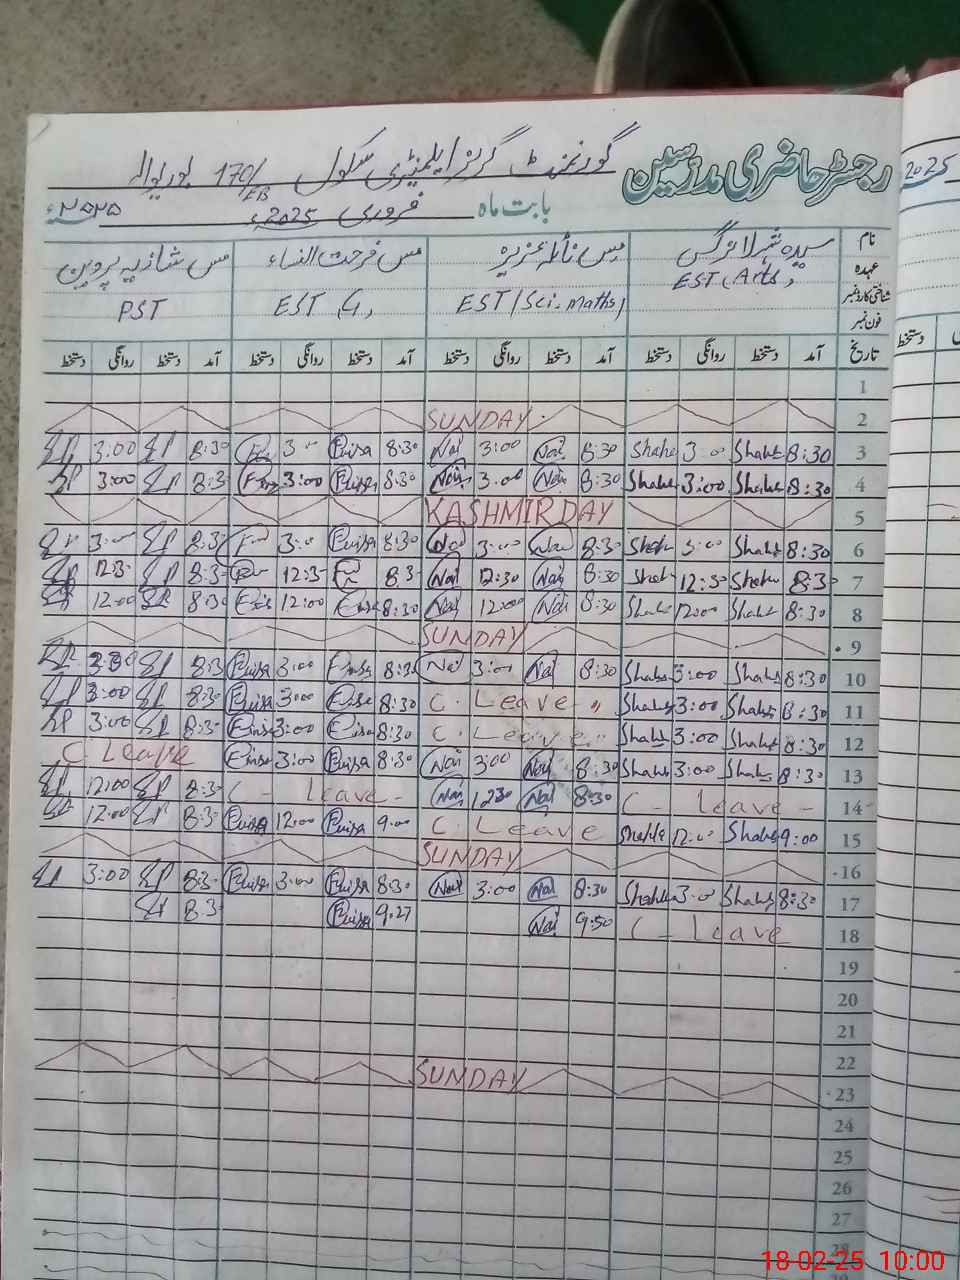 رجسٹر حاضری مدرسین گورنمنٹ گرلز ایلمنٹری سکول 170/EB بوریوالہ
بابت ماہ فروری 2025ء ۲۰۲۵ء
2025
نام سیدہ شہلا نرگس مس نائلہ عزیز مس فرحت النساء مس شازیہ پروین
عہدہ EST, Arts, EST (Sci-Maths) EST, G, PST
شناختی کارڈ نمبر
فون نمبر
تاریخ آمد دستخط روانگی دستخط آمد دستخط روانگی دستخط آمد دستخط روانگی دستخط آمد دستخط روانگی دستخط
دستخط
1
SUNDAY 2
3:00 8:30 3:00 8:30 Nai 3:00 Nai 8:30 Shahe 3:00 Shahe 8:30 3
3:00 8:3 3:00 8:30 Nai 3:00 Nai 8:30 Shahe 3:00 Shahe 8:30 4
KASHMIR DAY 5
3:00 8:3 3:00 8:30 Nai 3:00 Nai 8:30 Shahe 3:00 Shahe 8:30 6
12:3 8:3 12:3 8:3 Nai 12:30 Nai 8:30 Shahe 12:30 Shahe 8:3 7
12:00 8:30 12:00 8:30 Nai 12:00 Nai 8:30 Shahe 12:00 Shahe 8:30 8
SUNDAY 9
3:00 8:3 3:00 8:30 Nai 3:00 Nai 8:30 Shahe 3:00 Shahe 8:30 10
3:00 8:30 3:00 8:30 C. Leave Shahe 3:00 Shahe 8:30 11
3:00 8:30 3:00 8:30 C. Leave Shahe 3:00 Shahe 8:30 12
C Leave 3:00 8:30 Nai 3:00 Nai 8:30 Shahe 3:00 Shahe 8:30 13
12:00 8:30 C - Leave - Nai 1230 Nai 8:30 C - Leave - 14
12:00 8:3 12:00 9:00 C. Leave Shahe 12:00 Shahe 9:00 15
SUNDAY 16
3:00 8:3 3:00 8:30 Nai 3:00 Nai 8:30 Shahe 3:0 Shahe 8:30 17
8:3 9:27 Nai 9:50 C - Leave 18
19
20
21
22
SUNDAY 23
24
25
26
27
28
18-02-25 10:00